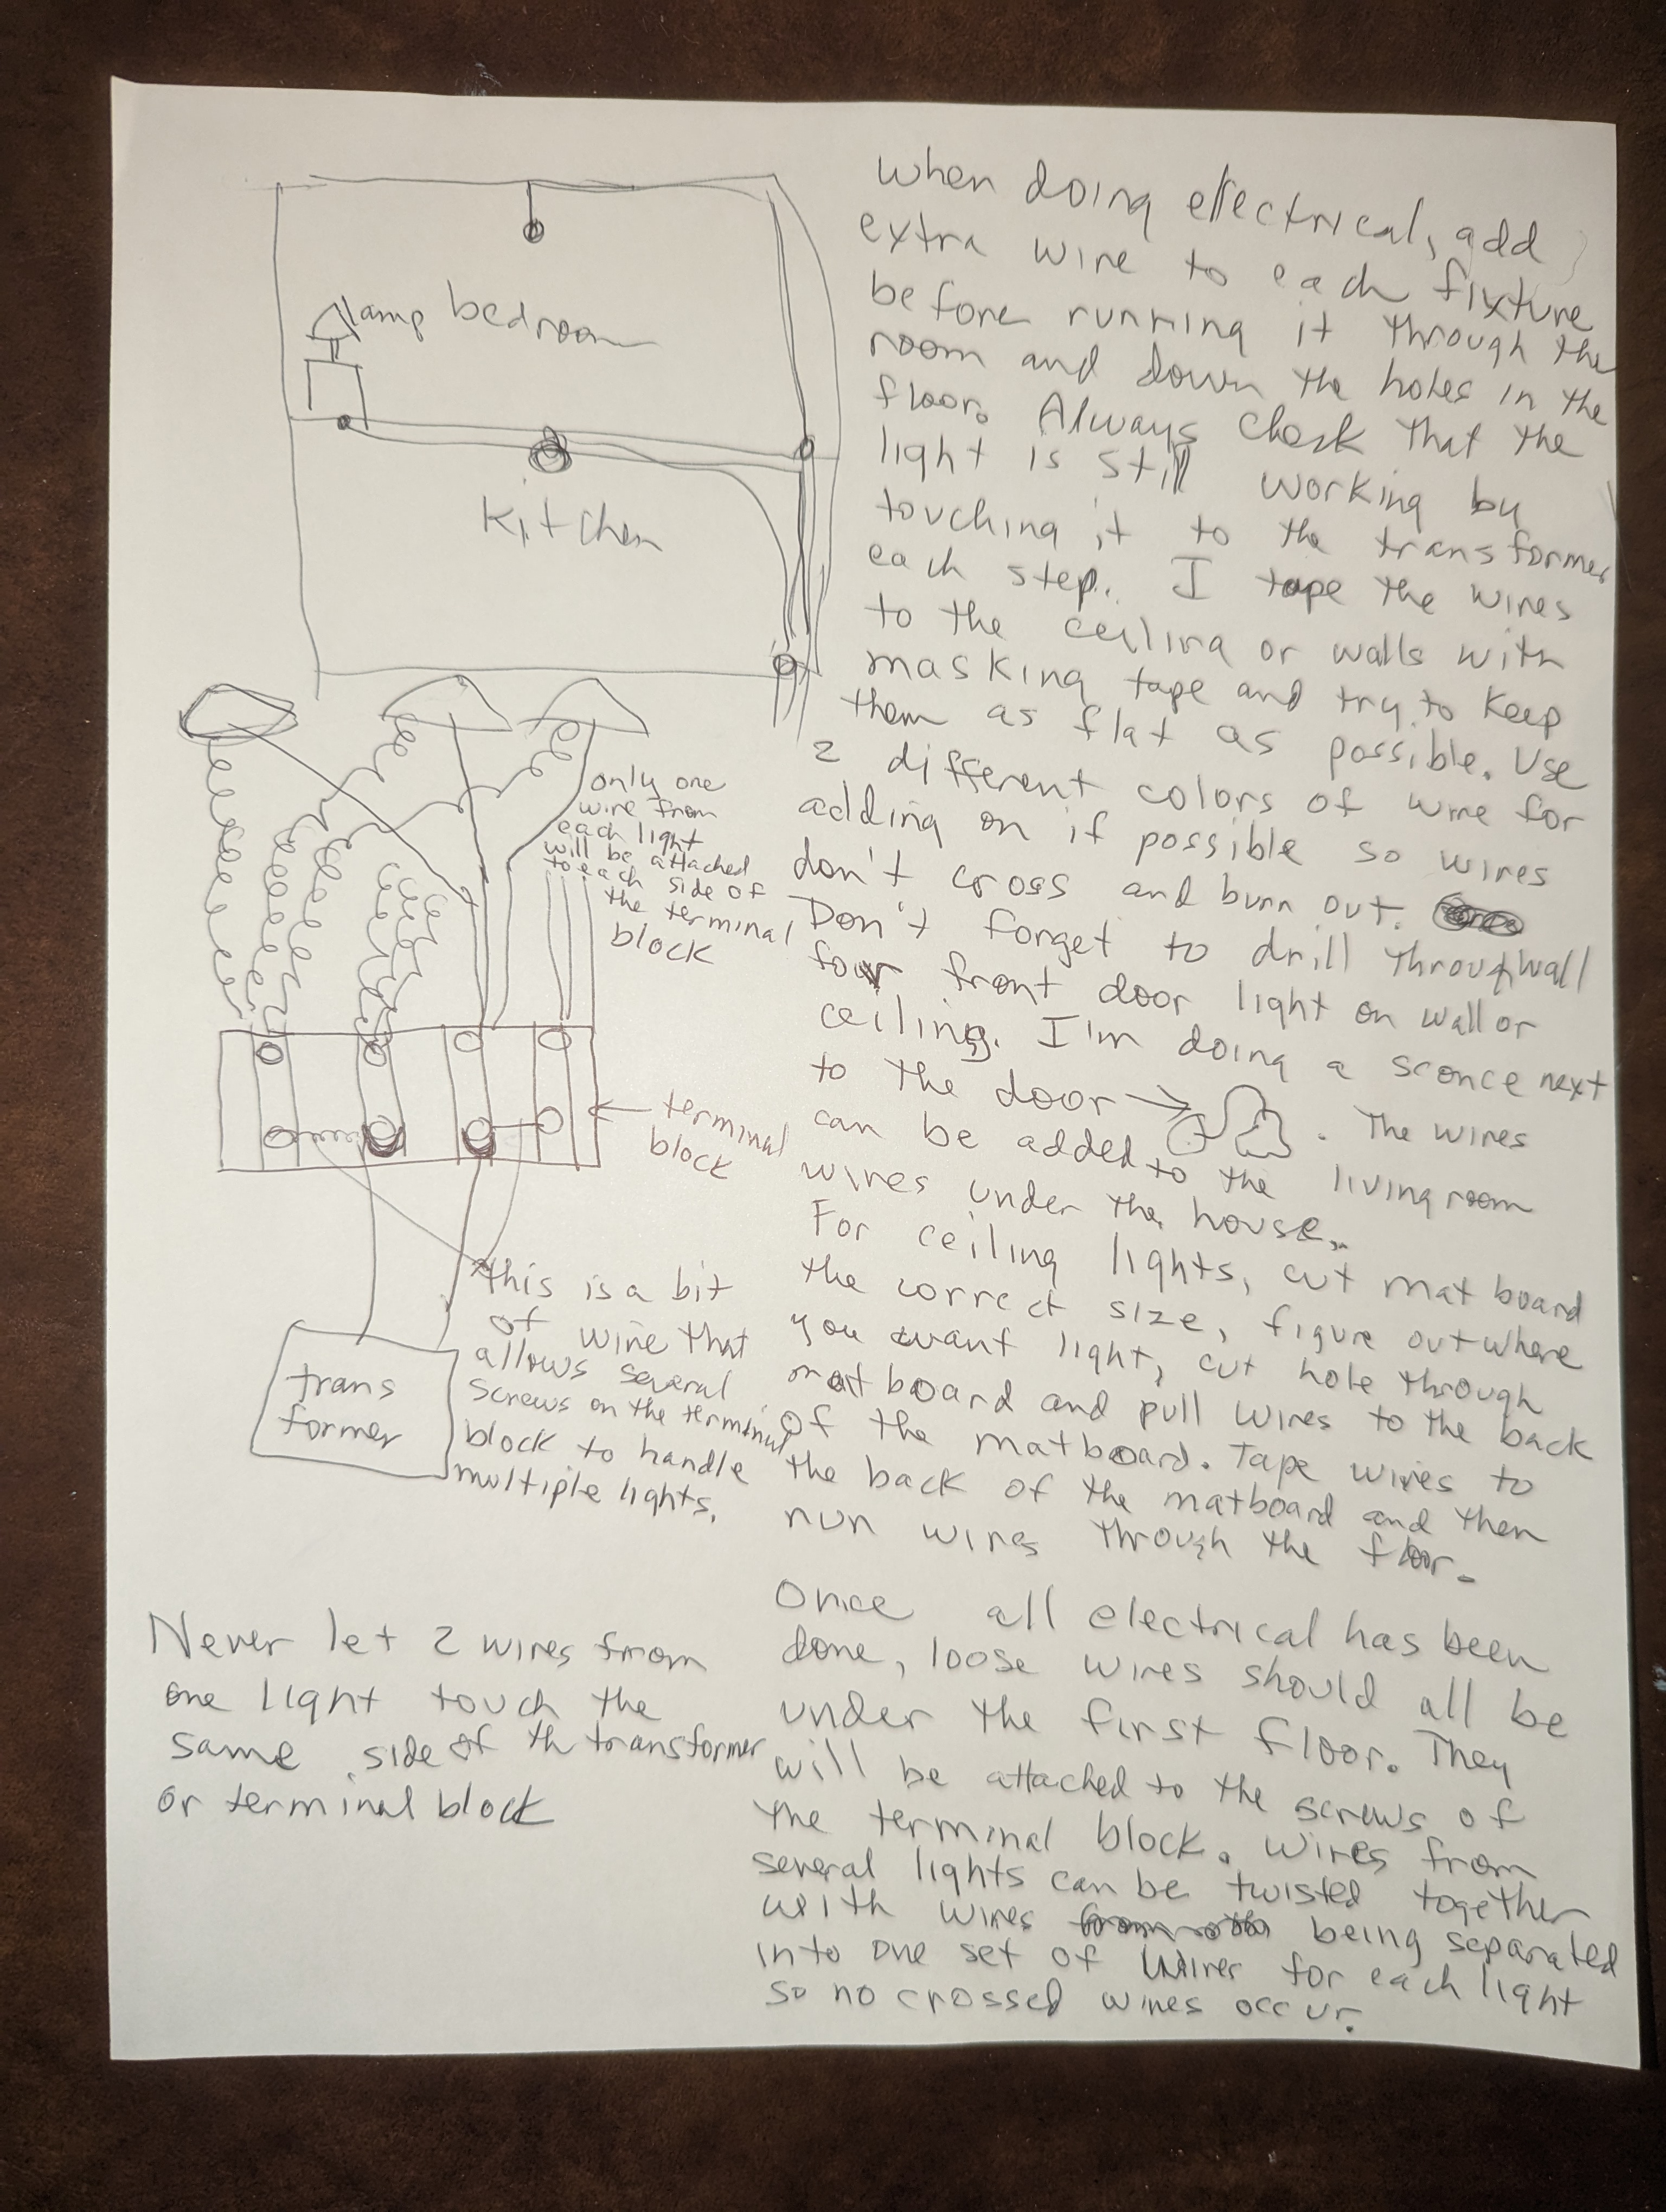 lamp bedroom
kitchen
only one
wire from
each light
will be attached
to each side of
the terminal
block
terminal
block
this is a bit
of wire that
allows several
screws on the terminal
block to handle
multiple lights.
trans
former
Never let 2 wires from
one light touch the
same side of th transformer
or terminal block
When doing electrical, add
extra wire to each fixture
before running it through the
room and down the holes in the
floor. Always check that the
light is still working by
touching it to the transformer
each step. I tape the wires
to the ceiling or walls with
masking tape and try to keep
them as flat as possible. Use
2 different colors of wire for
adding on if possible so wires
don't cross and burn out.
Don't forget to drill through wall
for front door light on wall or
ceiling. I'm doing a sconce next
to the door → . The wires
can be added to the livingroom
wires under the house.
For ceiling lights, cut mat board
the correct size, figure out where
you want light, cut hole through
mat board and pull wires to the back
of the matboard. Tape wires to
the back of the matboard and then
run wires through the floor.
Once all electrical has been
done, loose wires should all be
under the first floor. They
will be attached to the screws of
the terminal block. Wires from
several lights can be twisted together
with wires being separated
into one set of wires for each light
so no crossed wires occur.